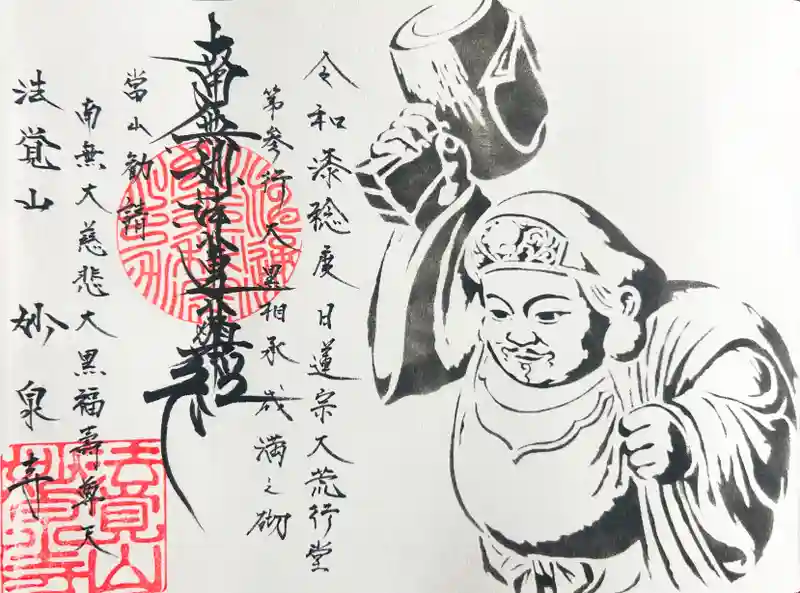 令和漆稔度日蓮宗大荒行堂
第参行大黒相承成満之砌
南無妙法蓮華経
當山勧請
南無大慈悲大黒福壽尊天
法覚山 妙泉寺
法覚山
妙泉寺